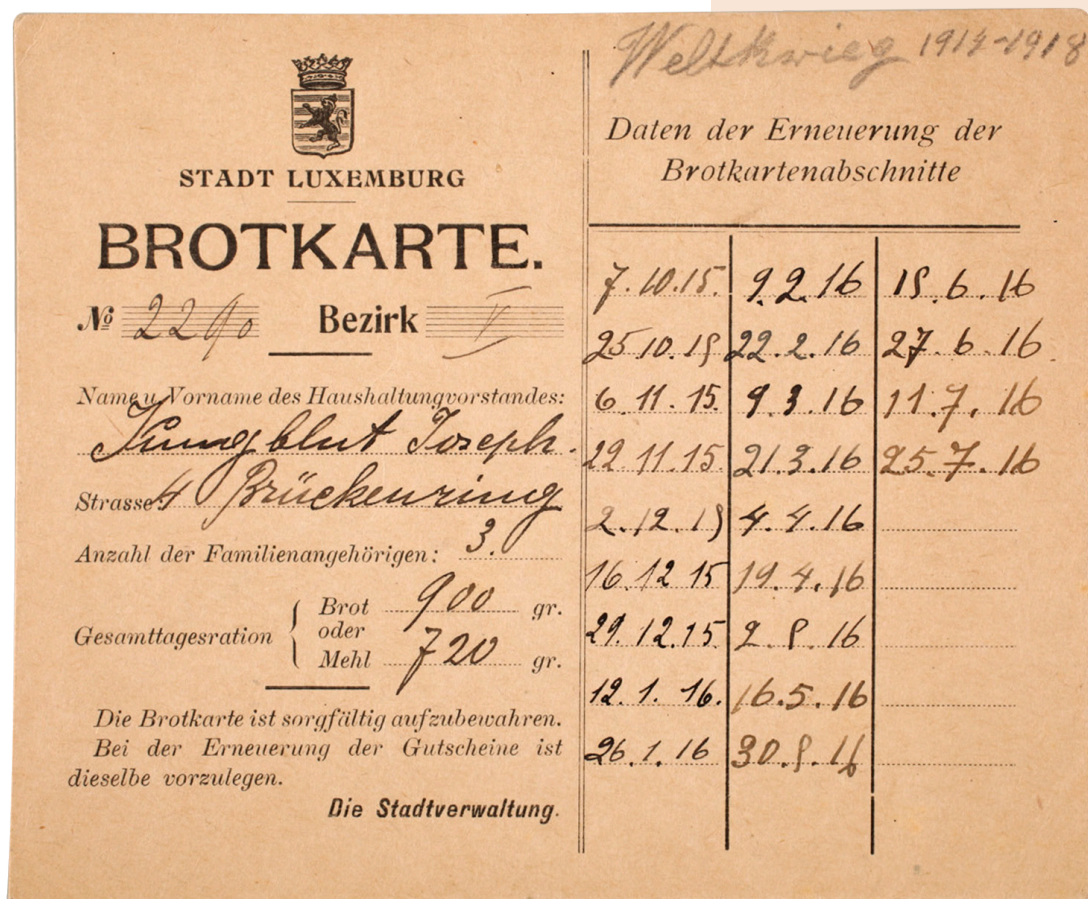 Weltkrieg 1914-1918
STADT LUXEMBURG
BROTKARTE.
No 2290 Bezirk V
Name u. Vorname des Haushaltungvorstandes:
Jungblut Joseph.
Strasse 4 Brückenring
Anzahl der Familienangehörigen: 3.
Gesamttagesration
Brot 900 gr.
oder
Mehl 720 gr.
Die Brotkarte ist sorgfältig aufzubewahren.
Bei der Erneuerung der Gutscheine ist
dieselbe vorzulegen.
Die Stadtverwaltung.
Daten der Erneuerung der
Brotkartenabschnitte
7.10.15. 9.2.16 15.6.16
25 10 15 22.2.16 27.6.16
6.11.15. 9 3.16 11.7.16
22 11 15. 21.3.16 25.7.16
2.12.15 4.4.16
16 12 15 19.4.16
29.12.15 2.5.16
12.1.16. 16.5.16
26.1.16 30.5.16